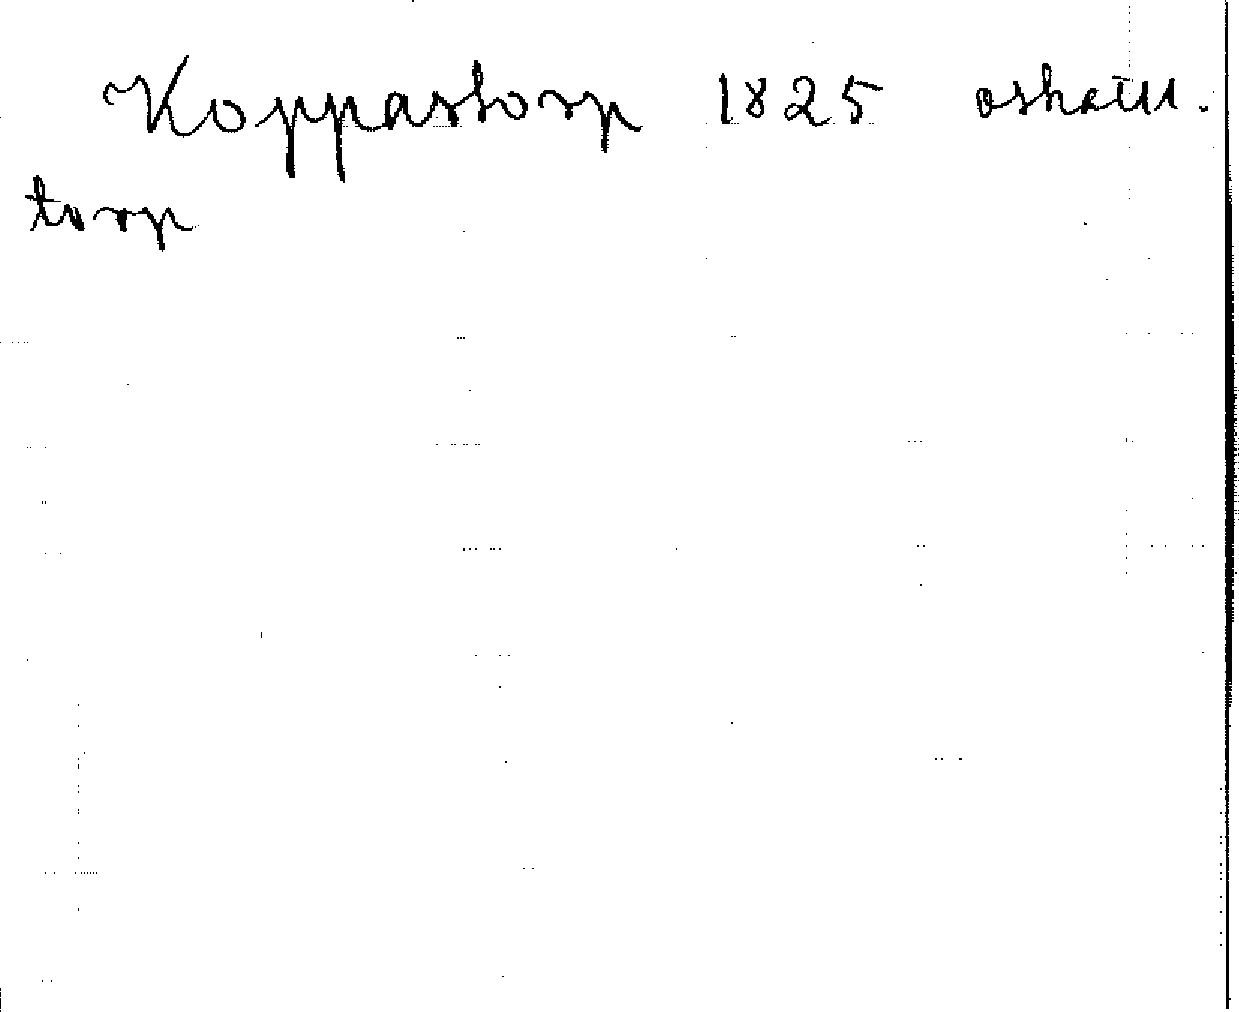 Koppastorp 1825 oskatt.
torp